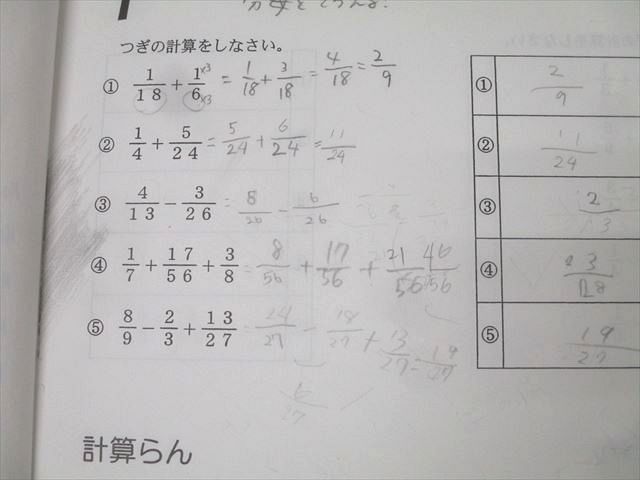 つぎの計算をしなさい。
① 1/18 + 1/6 ×3 ×3 = 1/18 + 3/18 = 4/18 = 2/9
② 1/4 + 5/24 = 5/24 + 6/24 = 11/24
③ 4/13 - 3/26 = 8/26 - 6/26
④ 1/7 + 17/56 + 3/8 = 8/56 + 17/56 + 21/56 46/56
⑤ 8/9 - 2/3 + 13/27 = 24/27 - 18/27 + 13/27 = 19/27
6/27
① 2/9
② 11/24
③ 2/13
④ 23/28
⑤ 19/27
計算らん